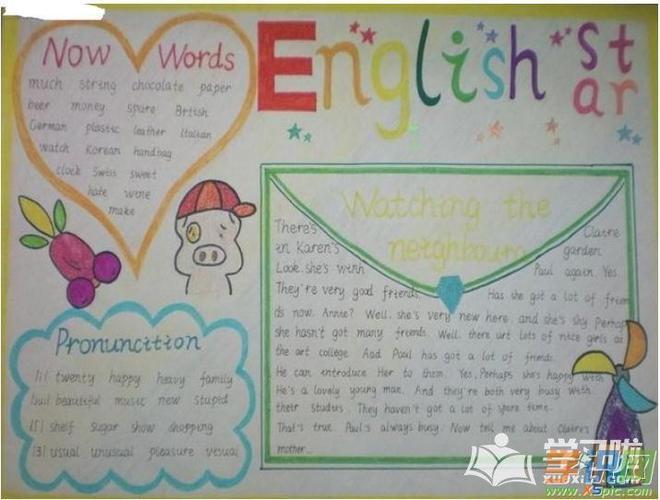 Now Words
much string chocolate paper
beer money spare Brtish
German plastic leather Italian
watch Korean handbag
clock Swiss sweet
hate wine
make
English St
ar
Watching the
neighbours
There's Claire
in Karen's garden
Look. she's with Paul again. Yes.
They're very good friends. Has she got a lot of frien
ds now. Annie? Well. she's very new here. and she's shy Perhap
she hasn't got many friends. Well. there art lots of nice girls at
the art college. And Paul has got a lot of friends.
He can introduce Her to them. Yes. Perhaps she's happy with
He's a lovely young man. And they're both very busy with
their studies. They haven't got a lot of spare time.
That's true. Paul's always busy. Now tell me about Claire's
mother...
Pronuncition
/i/ twenty happy heavy family
/ju:/ beautiful music new stupid
/ʃ/ shelf sugar show shopping
/ʒ/ usual unusual pleasure visual
学习啦
www.xspic.com